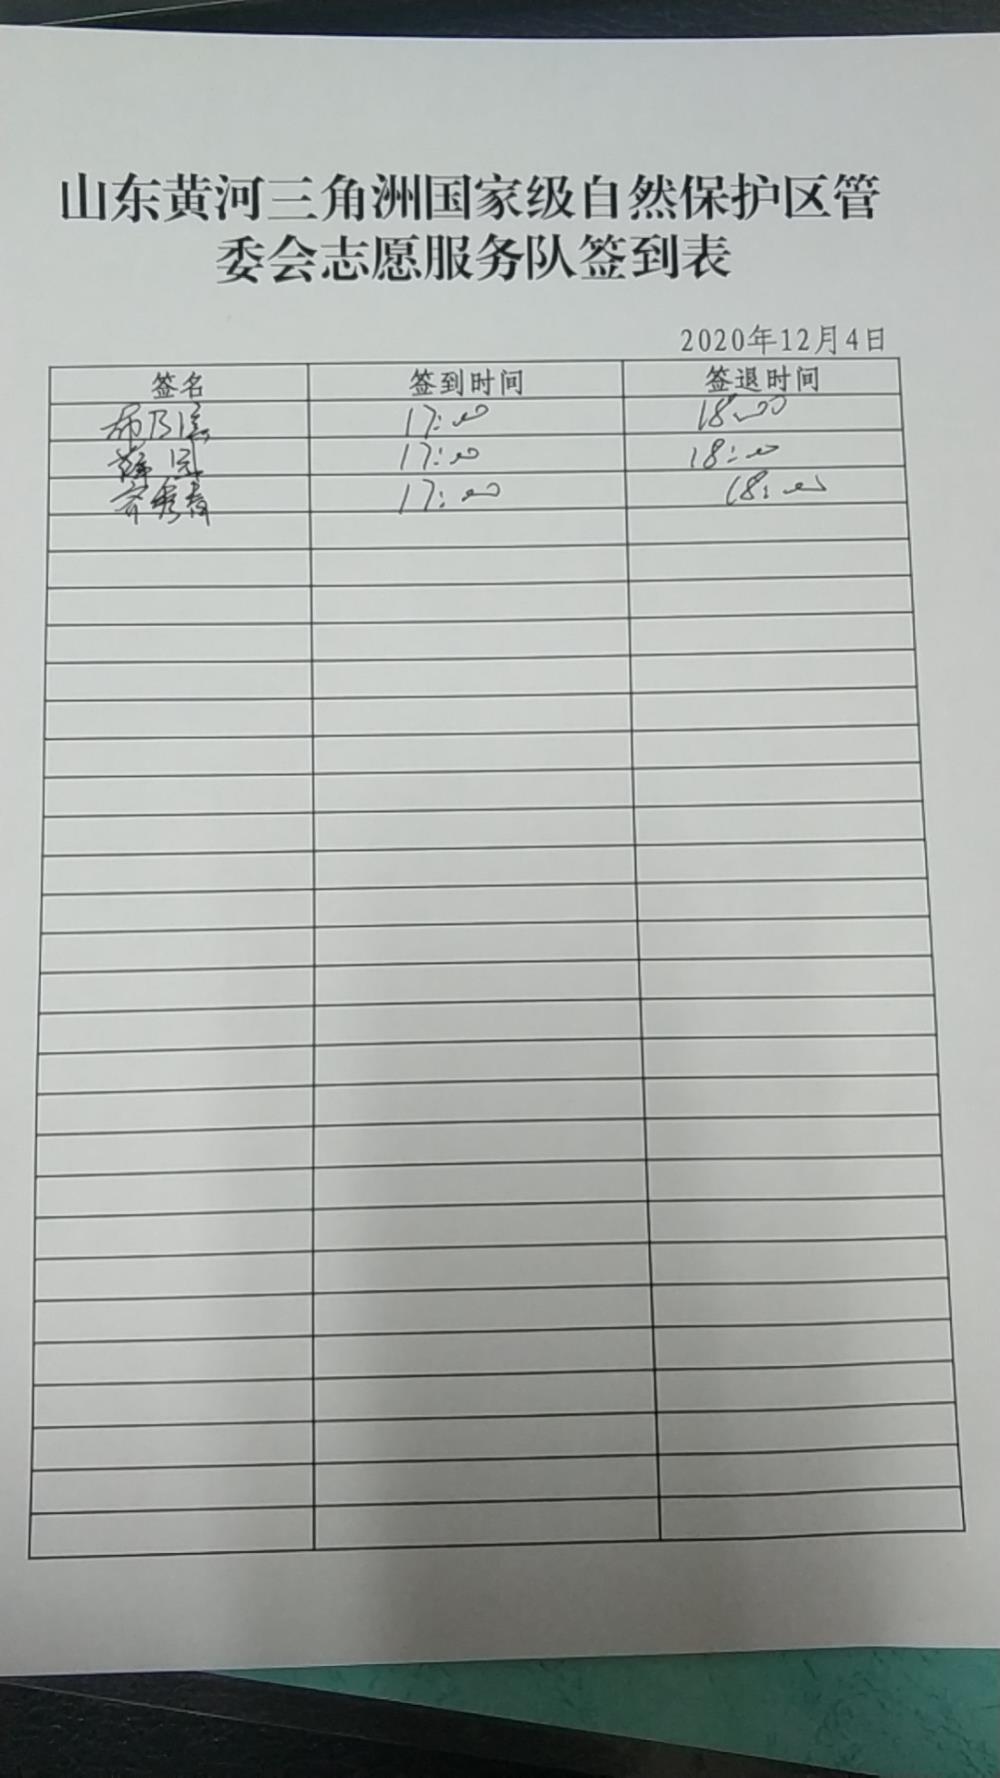 山东黄河三角洲国家级自然保护区管
委会志愿服务队签到表
2020年12月4日
签名 签到时间 签退时间
17:00 18:00
薛园 17:00 18:00
齐秀青 17:00 18:00